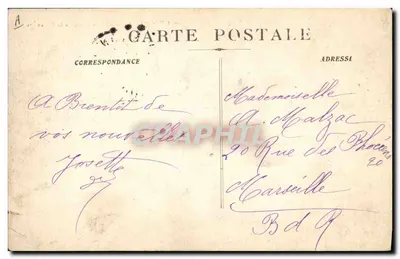 A
CARTE POSTALE
CORRESPONDANCE
ADRESSE
A Bientôt de
vos nouvelles
Josette
Mademoiselle
A. Malzac
20 Rue des Phocéens
20
Marseille
B d R